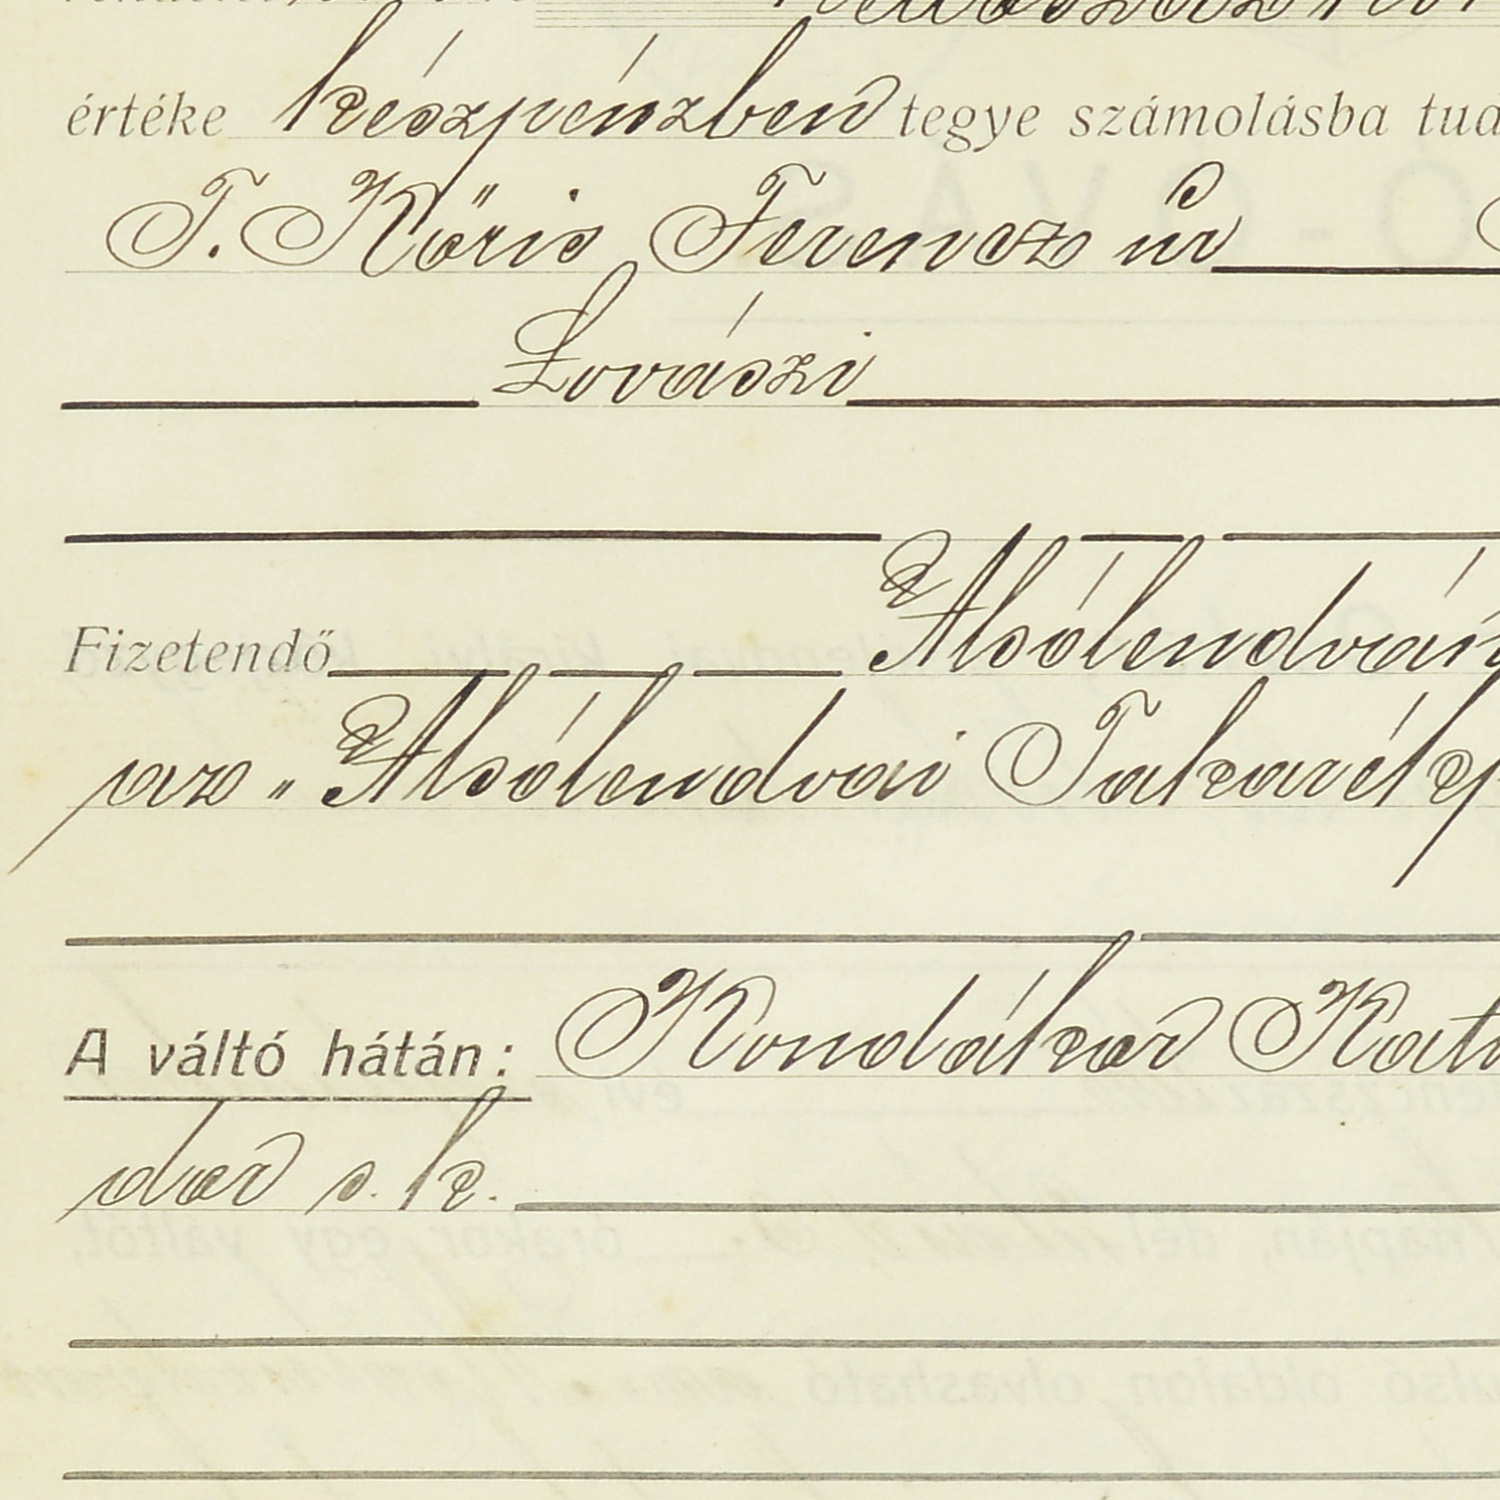 értéke készpénzben tegye számolásba
T. Kőris Ferencz úr
Lovászi
Fizetendő Alsólendván
az „Alsólendvai
A váltó hátán: Kondákor
dor s. k.